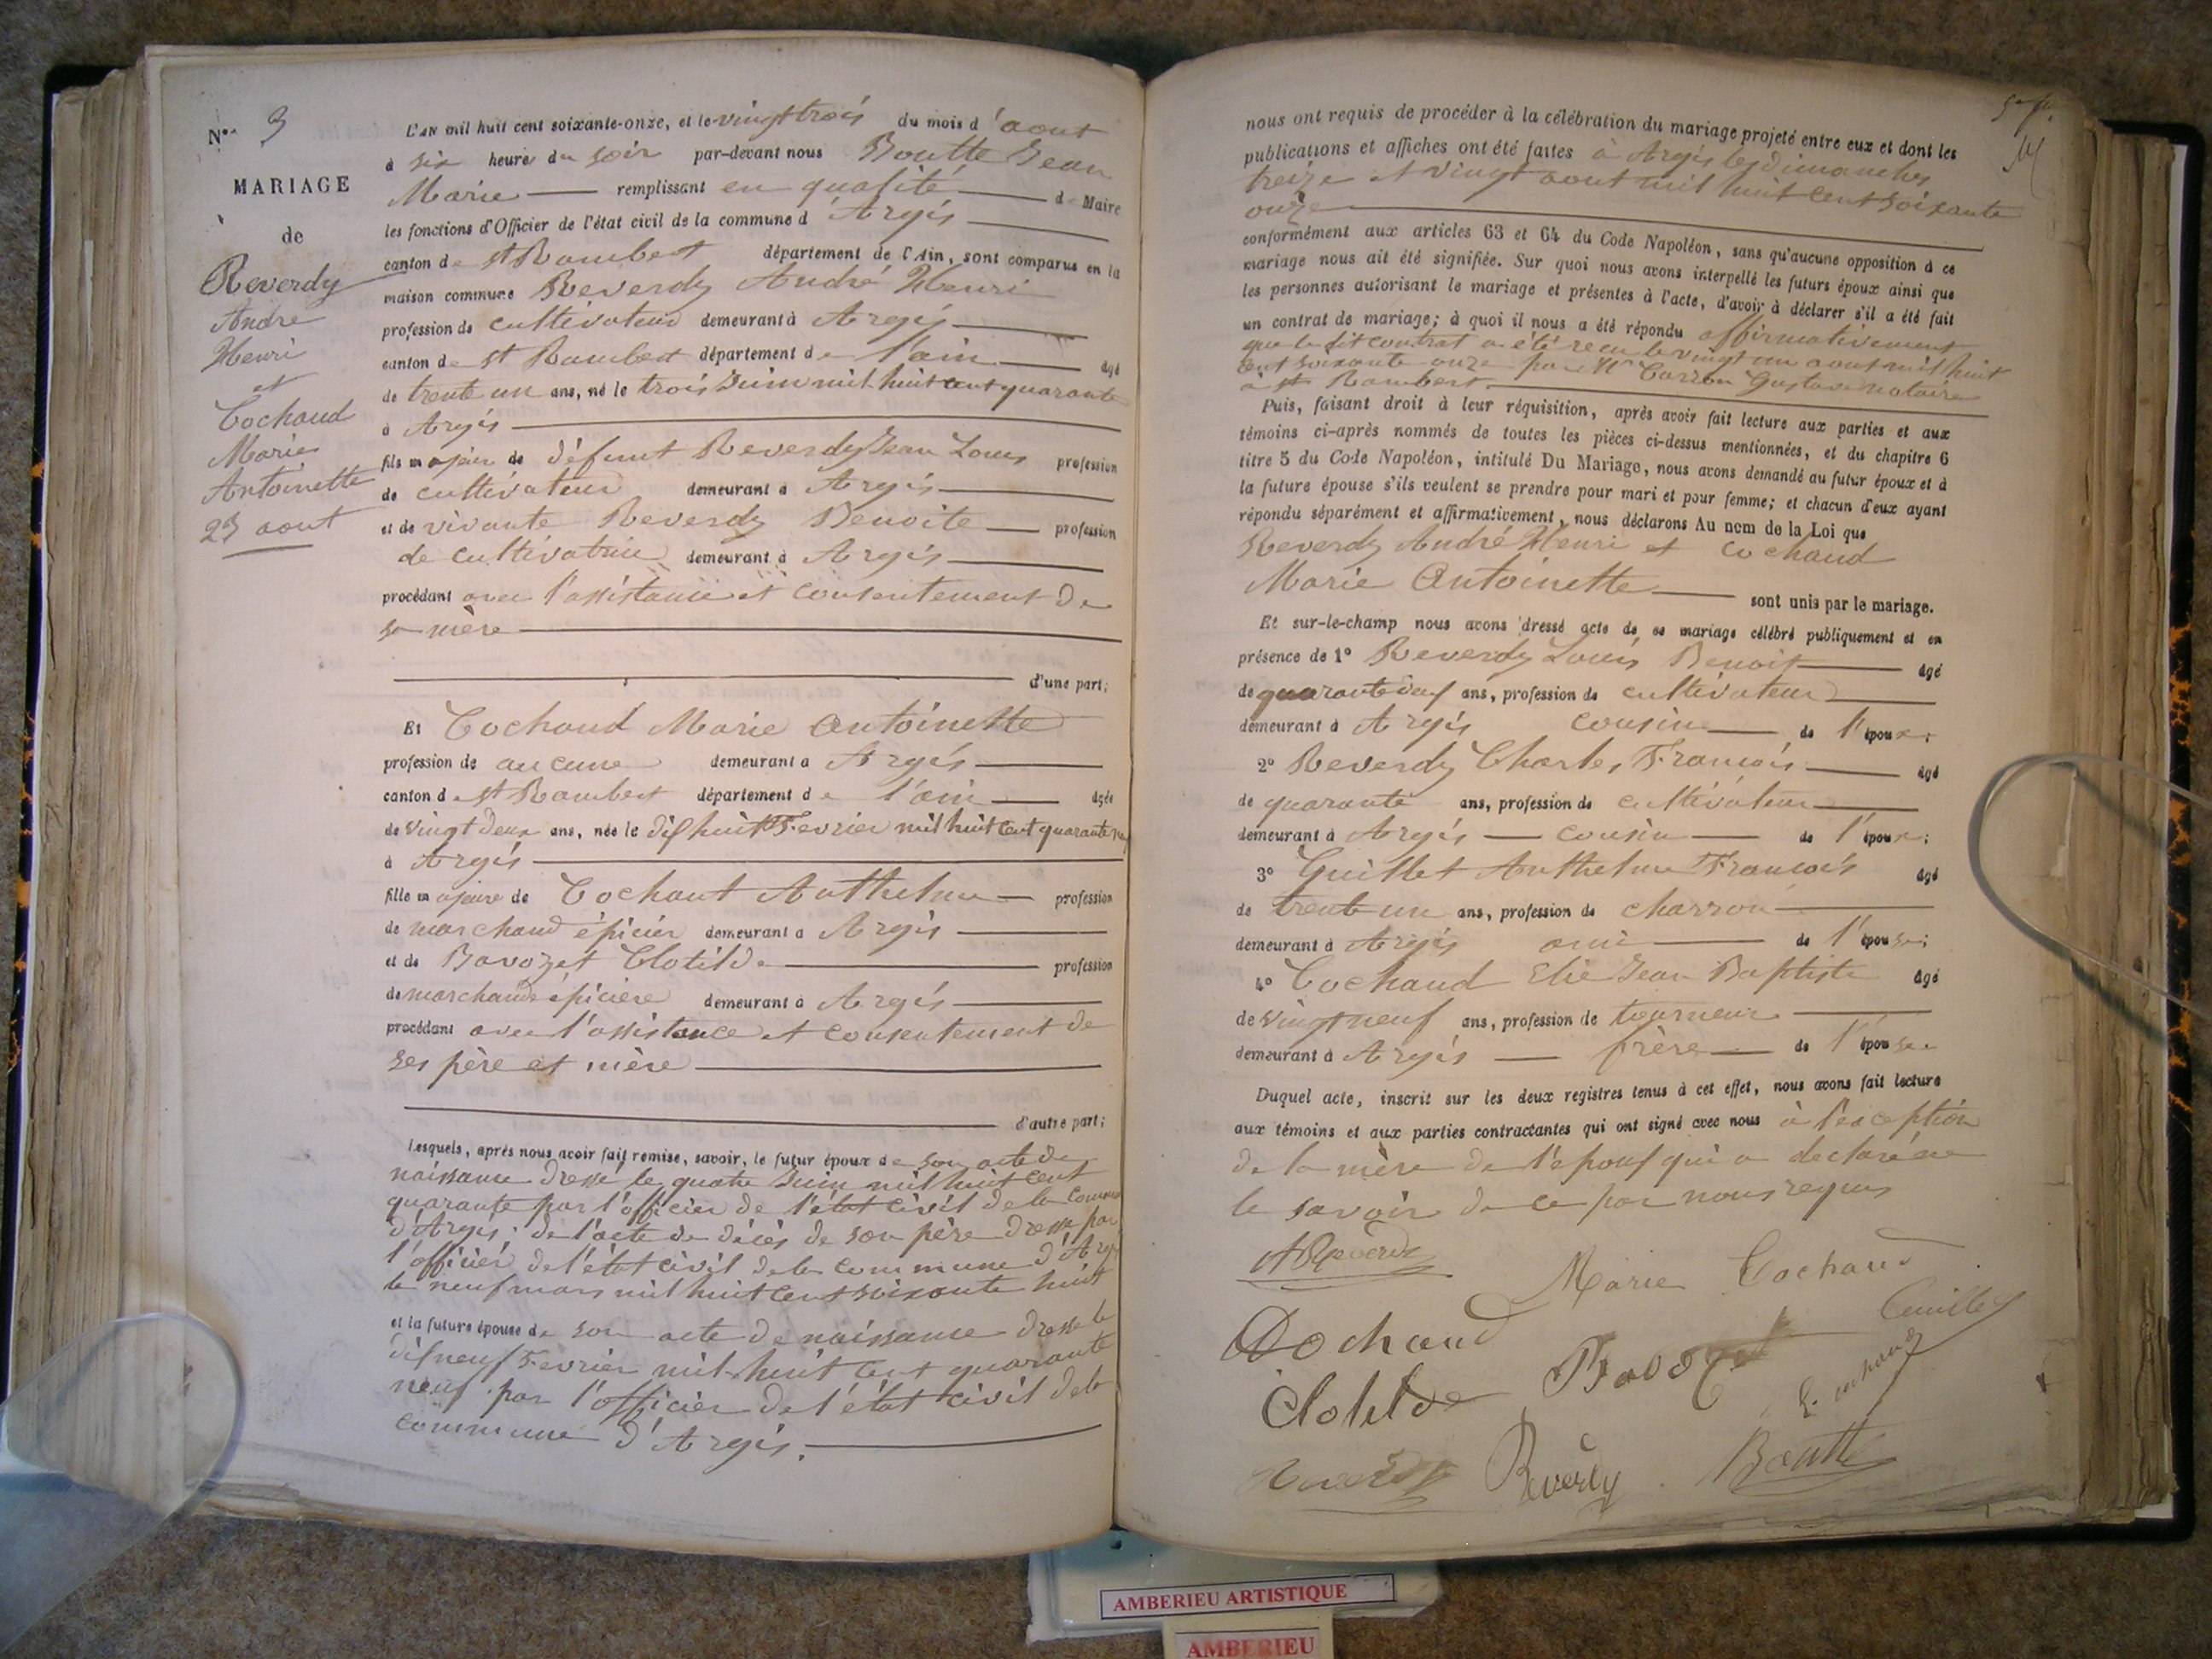 N° 3
MARIAGE
de
Reverdy
André
Henri
et
Cochaud
Marie
Antoinette
23 aout
L'an mil huit cent soixante-onze, et le vingt trois du mois d'aout
à six heure du soir par-devant nous Boutte Jean
Marie remplissant en qualité de Maire
les fonctions d'Officier de l'état civil de la commune d'Argis
canton de st Rambert département de l'Ain, sont comparus en la
maison commune Reverdy André Henri
profession de cultivateur demeurant à Argis
canton de st Rambert département de l'ain âgé
de trente un ans, né le trois Juin mil huit cent quarante
à Argis
fils majeur de défunt Reverdy Jean Louis profession
de cultivateur demeurant à Argis
et de vivante Reverdy Benoite profession
de cultivatrice demeurant à Argis
procédant avec l'assistance et consentement de
sa mère
d'une part;
Et Cochaud Marie Antoinette
profession de aucune demeurant à Argis
canton de st Rambert département de l'ain âgée
de vingt deux ans, née le dix huit Fevrier mil huit cent quarante neuf
à Argis
fille majeure de Cochaut Anthelme profession
de marchand épicier demeurant à Argis
et de Bavozet Clotilde profession
de marchande épiciere demeurant à Argis
procédant avec l'assistance et consentement de
ses père et mère
d'autre part;
Lesquels, après nous avoir fait remise, savoir, le futur époux de son acte de
naissance dressé le quatre Juin mil huit cent
quarante par l'officier de l'état civil de la commune
d'Argis; de l'acte de décès de son père dressé par
l'officier de l'état civil de la commune d'Argis
le neuf mars mil huit cent soixante huit
et la future épouse de son acte de naissance dressé le
dix neuf Fevrier mil huit cent quarante
neuf par l'officier de l'état civil de la
commune d'Argis.
nous ont requis de procéder à la célébration du mariage projeté entre eux et dont les
publications et affiches ont été faites à Argis les dimanches
treize et vingt aout mil huit cent soixante
onze
conformément aux articles 63 et 64 du Code Napoléon, sans qu'aucune opposition à ce
mariage nous ait été signifiée. Sur quoi nous avons interpellé les futurs époux ainsi que
les personnes autorisant le mariage et présentes à l'acte, d'avoir à déclarer s'il a été fait
un contrat de mariage; à quoi il nous a été répondu affirmativement
que le dit contrat a été reçu le vingt un aout mil huit
cent soixante onze par Me Carron Gustave notaire
à st Rambert
Puis, faisant droit à leur réquisition, après avoir fait lecture aux parties et aux
témoins ci-après nommés de toutes les pièces ci-dessus mentionnées, et du chapitre 6
titre 5 du Code Napoléon, intitulé Du Mariage, nous avons demandé au futur époux et à
la future épouse s'ils veulent se prendre pour mari et pour femme; et chacun d'eux ayant
répondu séparément et affirmativement, nous déclarons Au nom de la Loi que
Reverdy André Henri et Cochaud
Marie Antoinette sont unis par le mariage.
Et sur-le-champ nous avons dressé acte de ce mariage célébré publiquement et en
présence de 1° Reverdy Louis Benoit âgé
de quarante neuf ans, profession de cultivateur
demeurant à Argis cousin de l'époux;
2° Reverdy Charles François âgé
de quarante ans, profession de cultivateur
demeurant à Argis cousin de l'époux;
3° Guillet Anthelme François âgé
de trente un ans, profession de charron
demeurant à Argis ami de l'épouse;
4° Cochaud Elie Jean Baptiste âgé
de vingt neuf ans, profession de tourneur
demeurant à Argis frère de l'épouse
Duquel acte, inscrit sur les deux registres tenus à cet effet, nous avons fait lecture
aux témoins et aux parties contractantes qui ont signé avec nous à l'exception
de la mère de l'epoux qui a declaré ne
le savoir de ce par nous requis
Marie Cochaud
Cochaud
Clotilde Bavozet
Reverdy Reverdy Boutte
AMBERIEU ARTISTIQUE
AMBERIEU